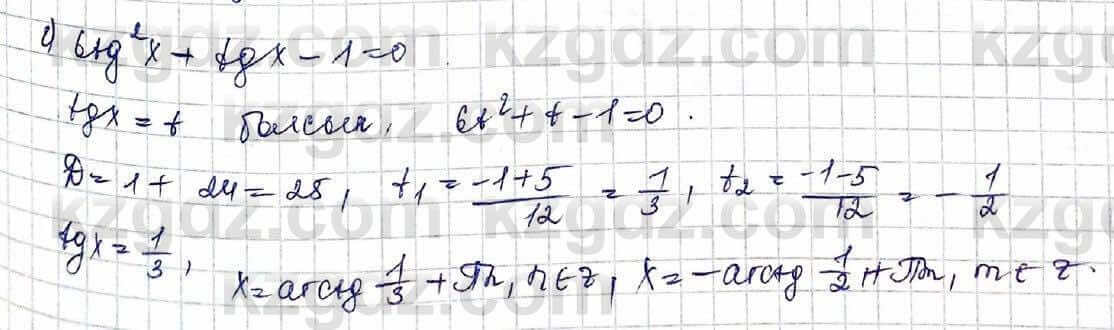 c) 6tg²x + tgx - 1 = 0.
tgx = t болсын, 6t² + t - 1 = 0.
D = 1 + 24 = 25, t₁ = (-1+5)/12 = 1/3, t₂ = (-1-5)/12 = -1/2
tgx = 1/3, x = arctg 1/3 + πn, n ∈ z, x = -arctg 1/2 + πm, m ∈ z.
kzgdz.com